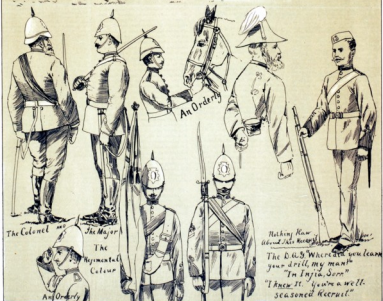 An Orderly
The Colonel and The Major
The
Regimental
Colour
An Orderly
Nothing Raw
About This Recruit
The D.A.G. "Where did you learn
your drill, my man"
"In Injia, Sorr"
"I knew It. You're a well-
seasoned Recruit."